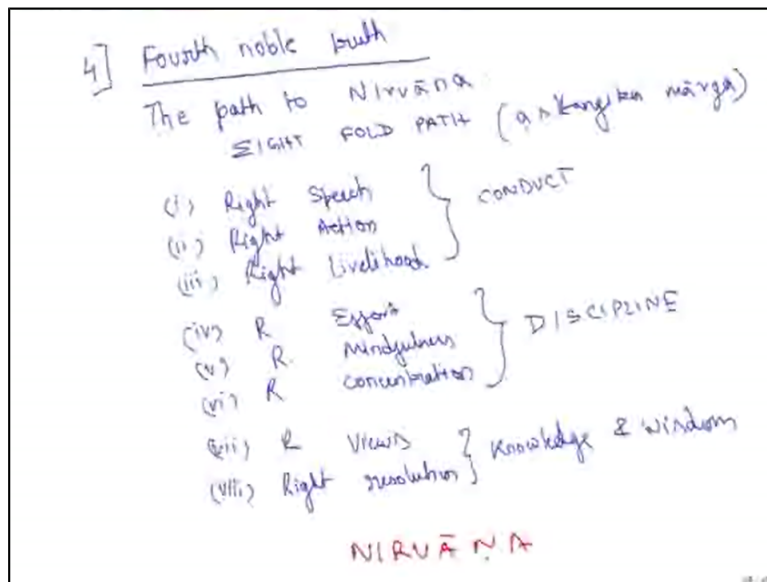 4] Fourth noble truth
The path to Nirvāna
EIGHT FOLD PATH (aṣtangika mārga)
(i) Right Speech
(ii) Right Action } CONDUCT
(iii) Right Livelihood
(iv) R Effort
(v) R. Mindfulness } DISCIPLINE
(vi) R concentration
(vii) R Views
(viii) Right resolution } Knowledge & wisdom
NIRVĀṆA